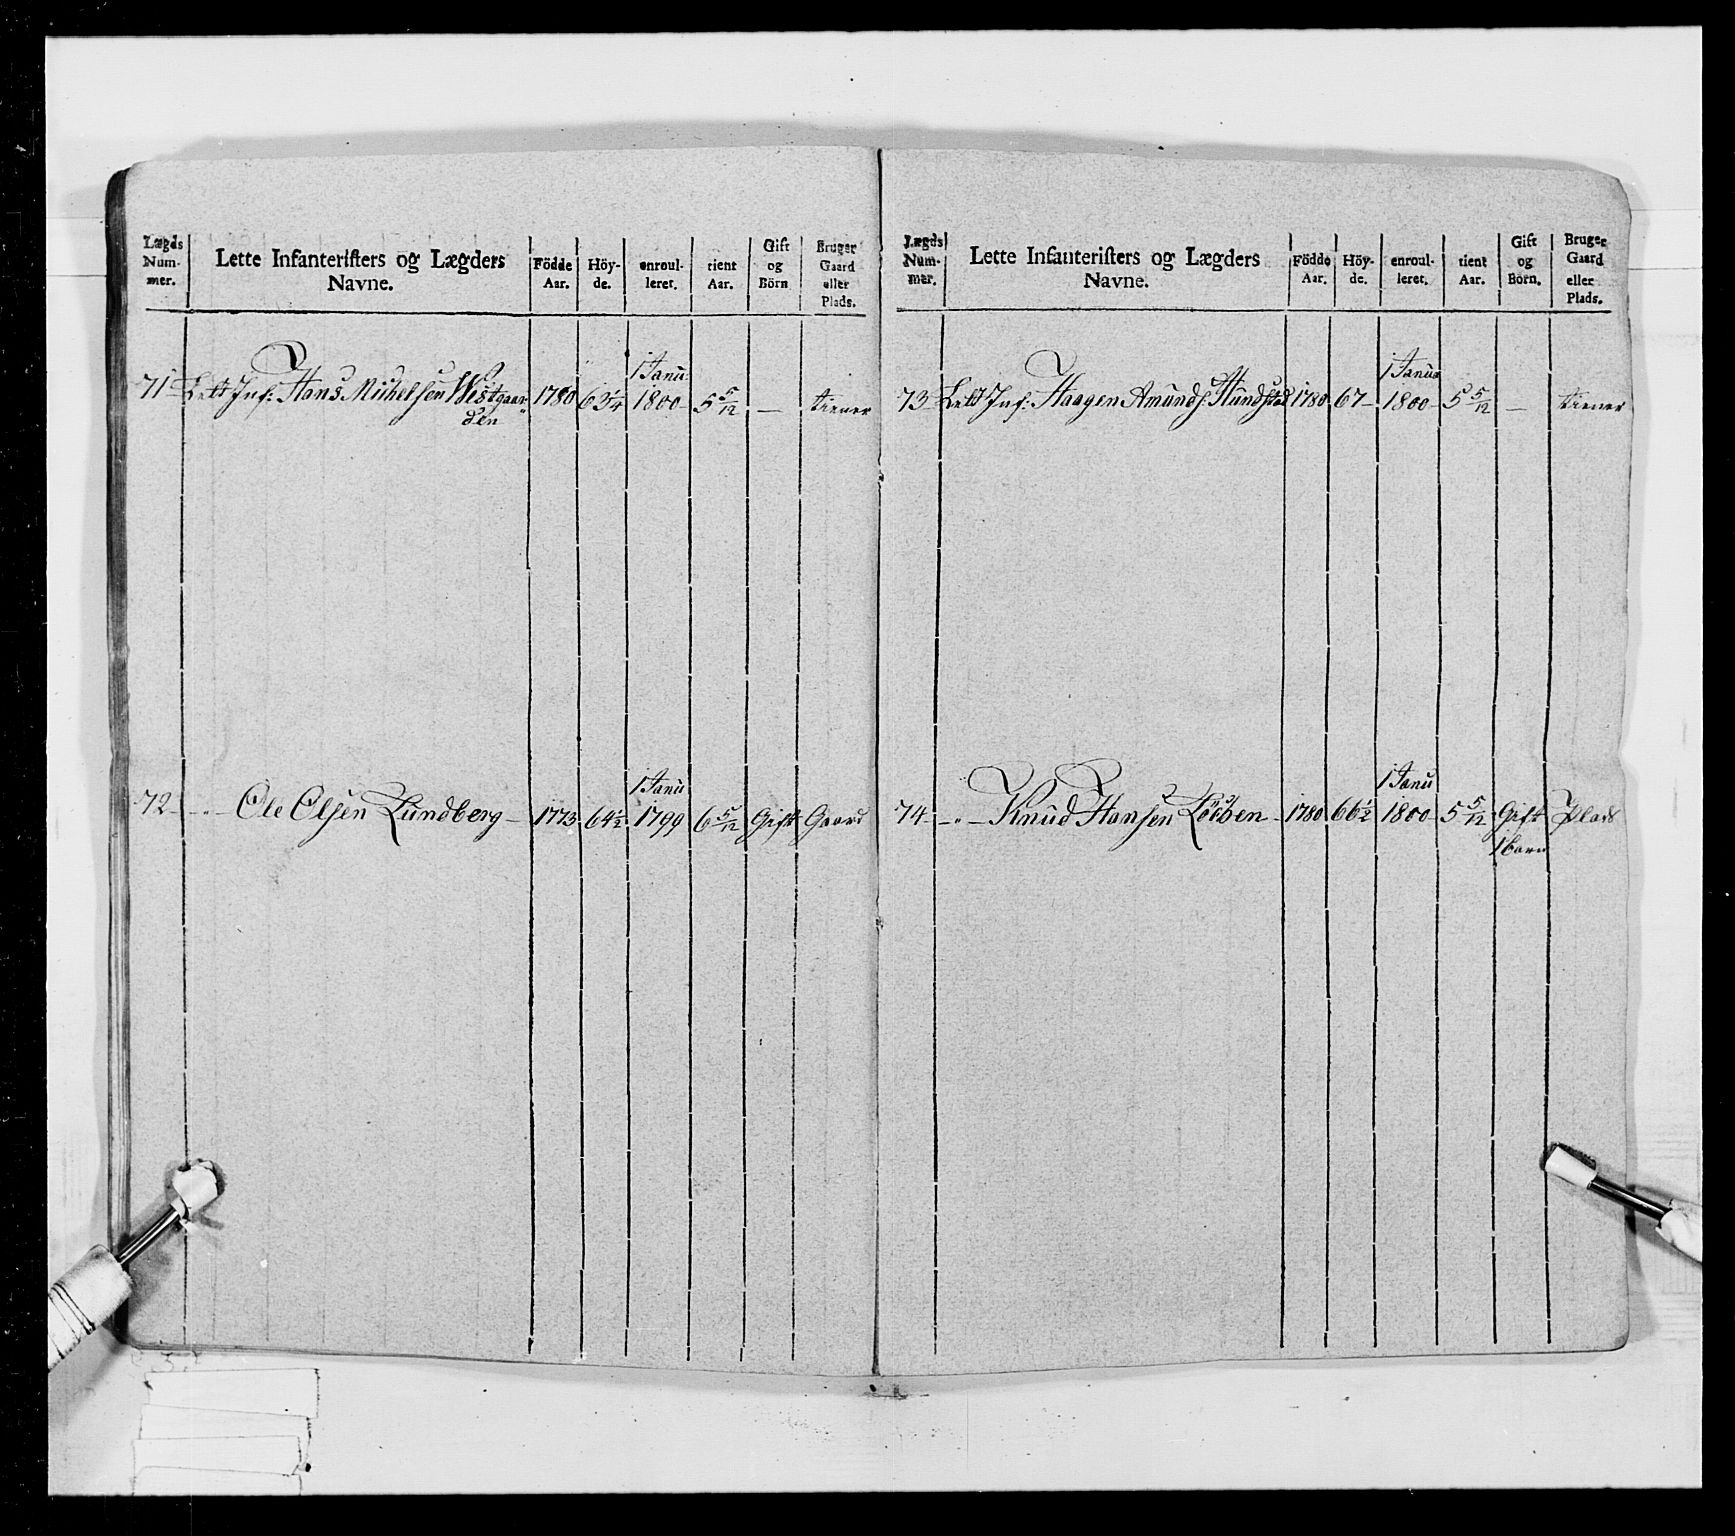 Lægds Num- mer. Lette Infanteristers og Lægders Navne. Födde Aar. Höy- de. enroul- leret. tient Aar. Gift og Börn Bruger Gaard eller Plads.
1 Janu:
71 Lett Inf: Hans Michelsen Westgaar 1780 1800 5 5/12 — tiener
den
1 Janu
72 - „ - Ole Olsen Lundberg 1773 64½ 1799 6 5/12 Gift Gaard
Lægds Num- mer. Lette Infanteristers og Lægders Navne. Födde Aar. Höy- de. enroul- leret. tient Aar. Gift og Börn. Bruger Gaard eller Plads.
1 Janua
73 Lett Inf: Haagen Amunds. Hundstad 1780 67 1800 5 5/12 — tiener
1 Janu
74 - „ - Knud Hansen 1780 66½ 1800 5 5/12 Gift Plads
1 barn